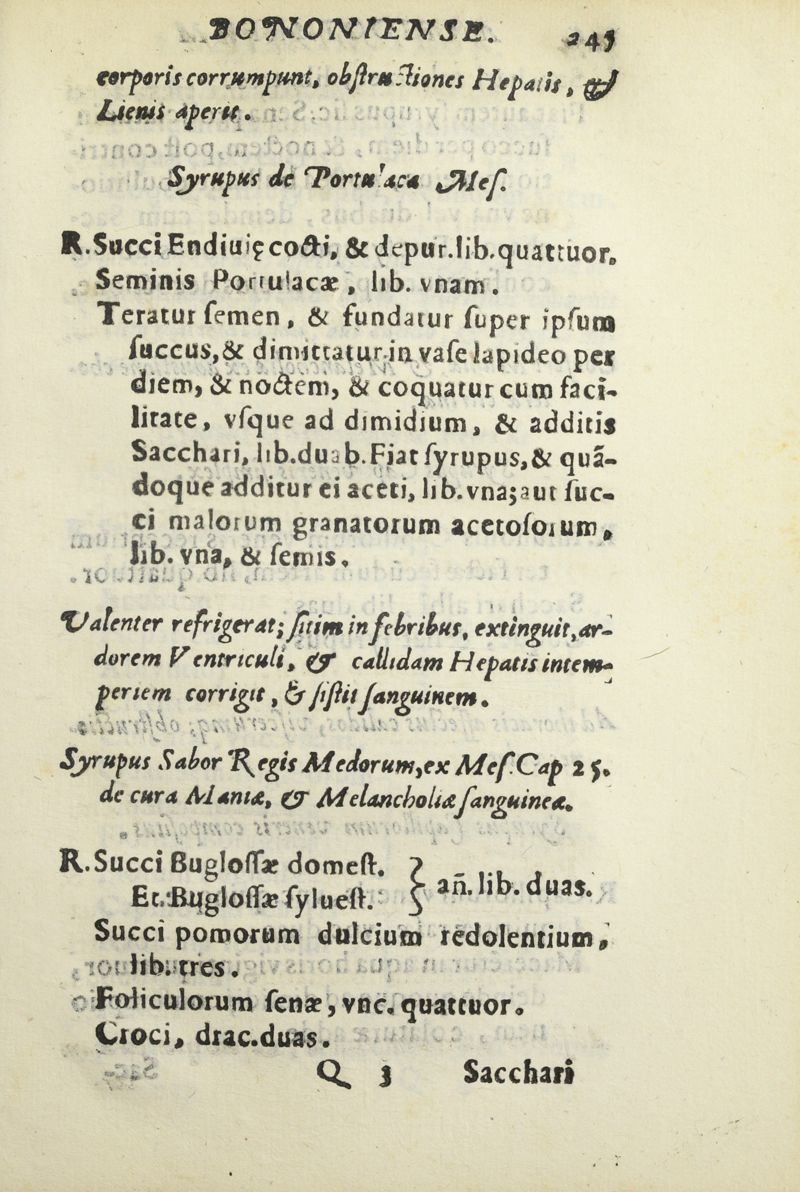 BONONIENSE. 245
corporis corrumpunt, obſtructiones Hepatis, &
Lienis aperit.
Syrupus de Portulaca Meſ.
R. Succi Endiuię cocti, & depur. lib. quattuor.
Seminis Portulacæ, lib. vnam.
Teratur ſemen, & fundatur ſuper ipſum
ſuccus, & dimittatur in vaſe lapideo per
diem, & noctem, & coquatur cum faci-
litate, vſque ad dimidium, & additis
Sacchari, lib. duab. Fiat ſyrupus, & quā-
doque additur ei aceti, lib. vna; aut ſuc-
ci malorum granatorum acetoſorum,
lib. vna, & ſemis.
Valenter refrigerat; ſitim in febribus, extinguit, ar-
dorem Ventriculi, & callidam Hepatis intem-
periem corrigit, & ſiſtit ſanguinem.
Syrupus Sabor Regis Medorum, ex Meſ. Cap 25.
de cura Maniæ, & Melancholiæ ſanguineæ.
R. Succi Bugloſſæ domeſt. }
Et. Bugloſſæ ſylueſt. } añ. lib. duas.
Succi pomorum dulcium redolentium,
lib. tres.
Foliculorum ſenæ, vnc. quattuor.
Croci, drac. duas.
Q 3 Sacchari